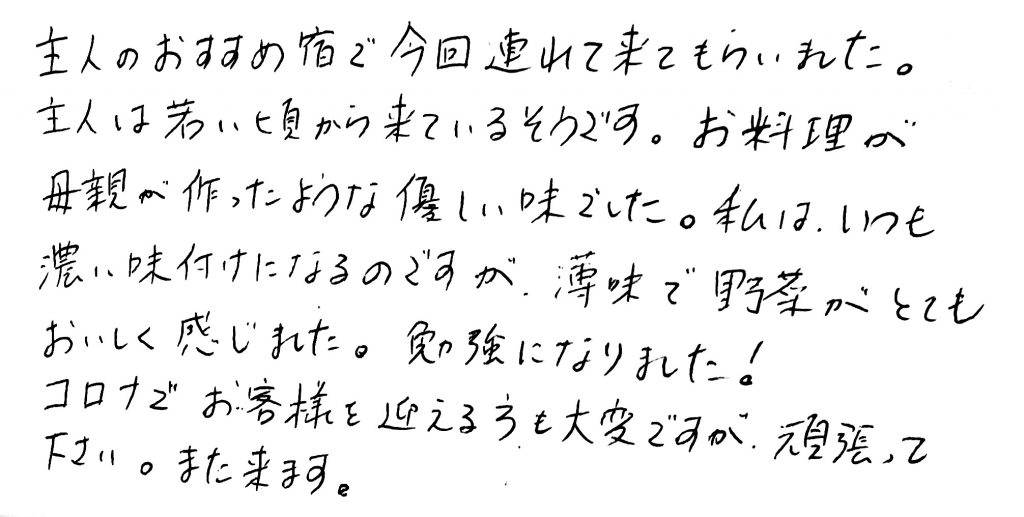 主人のおすすめ宿で今回連れて来てもらいました。
主人は若い頃から来ているそうです。お料理が
母親が作ったような優しい味でした。私は、いつも
濃い味付けになるのですが、薄味で野菜がとても
おいしく感じました。勉強になりました!
コロナでお客様を迎える方も大変ですが、頑張って
下さい。また来ます。